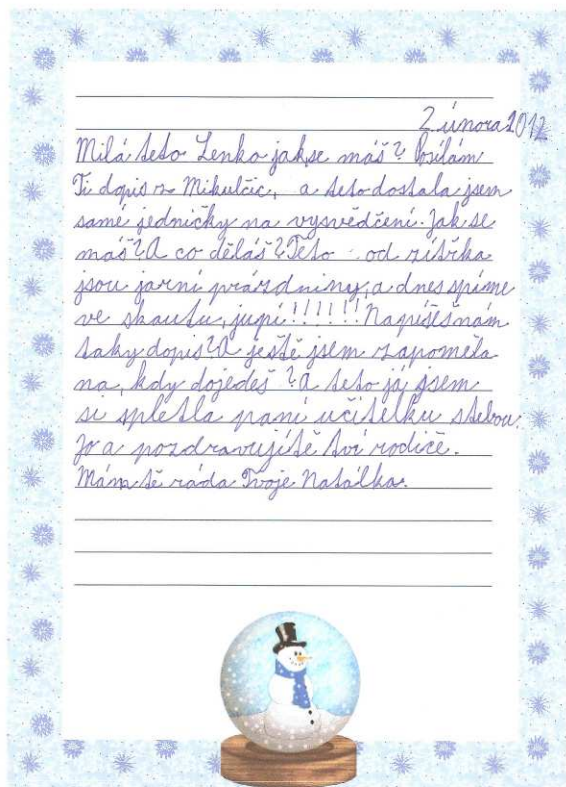 2 února 2012
Milá teto Lenko jak se máš? Posílám
Ti dopis z Mikulčic, a teto dostala jsem
samé jedničky na vysvědčení. Jak se
máš? A co děláš? Teto od zítřka
jsou jarní prázdniny, a dnes spíme
ve skautu, jupí!!!!!! Napíšeš nám
taky dopis? A ještě jsem zapoměla
na, kdy dojedeš? A teto já jsem
si spletla paní učitelku stebou.
Jo a pozdravujítě tví rodiče.
Mám tě ráda Tvoje Natálka.